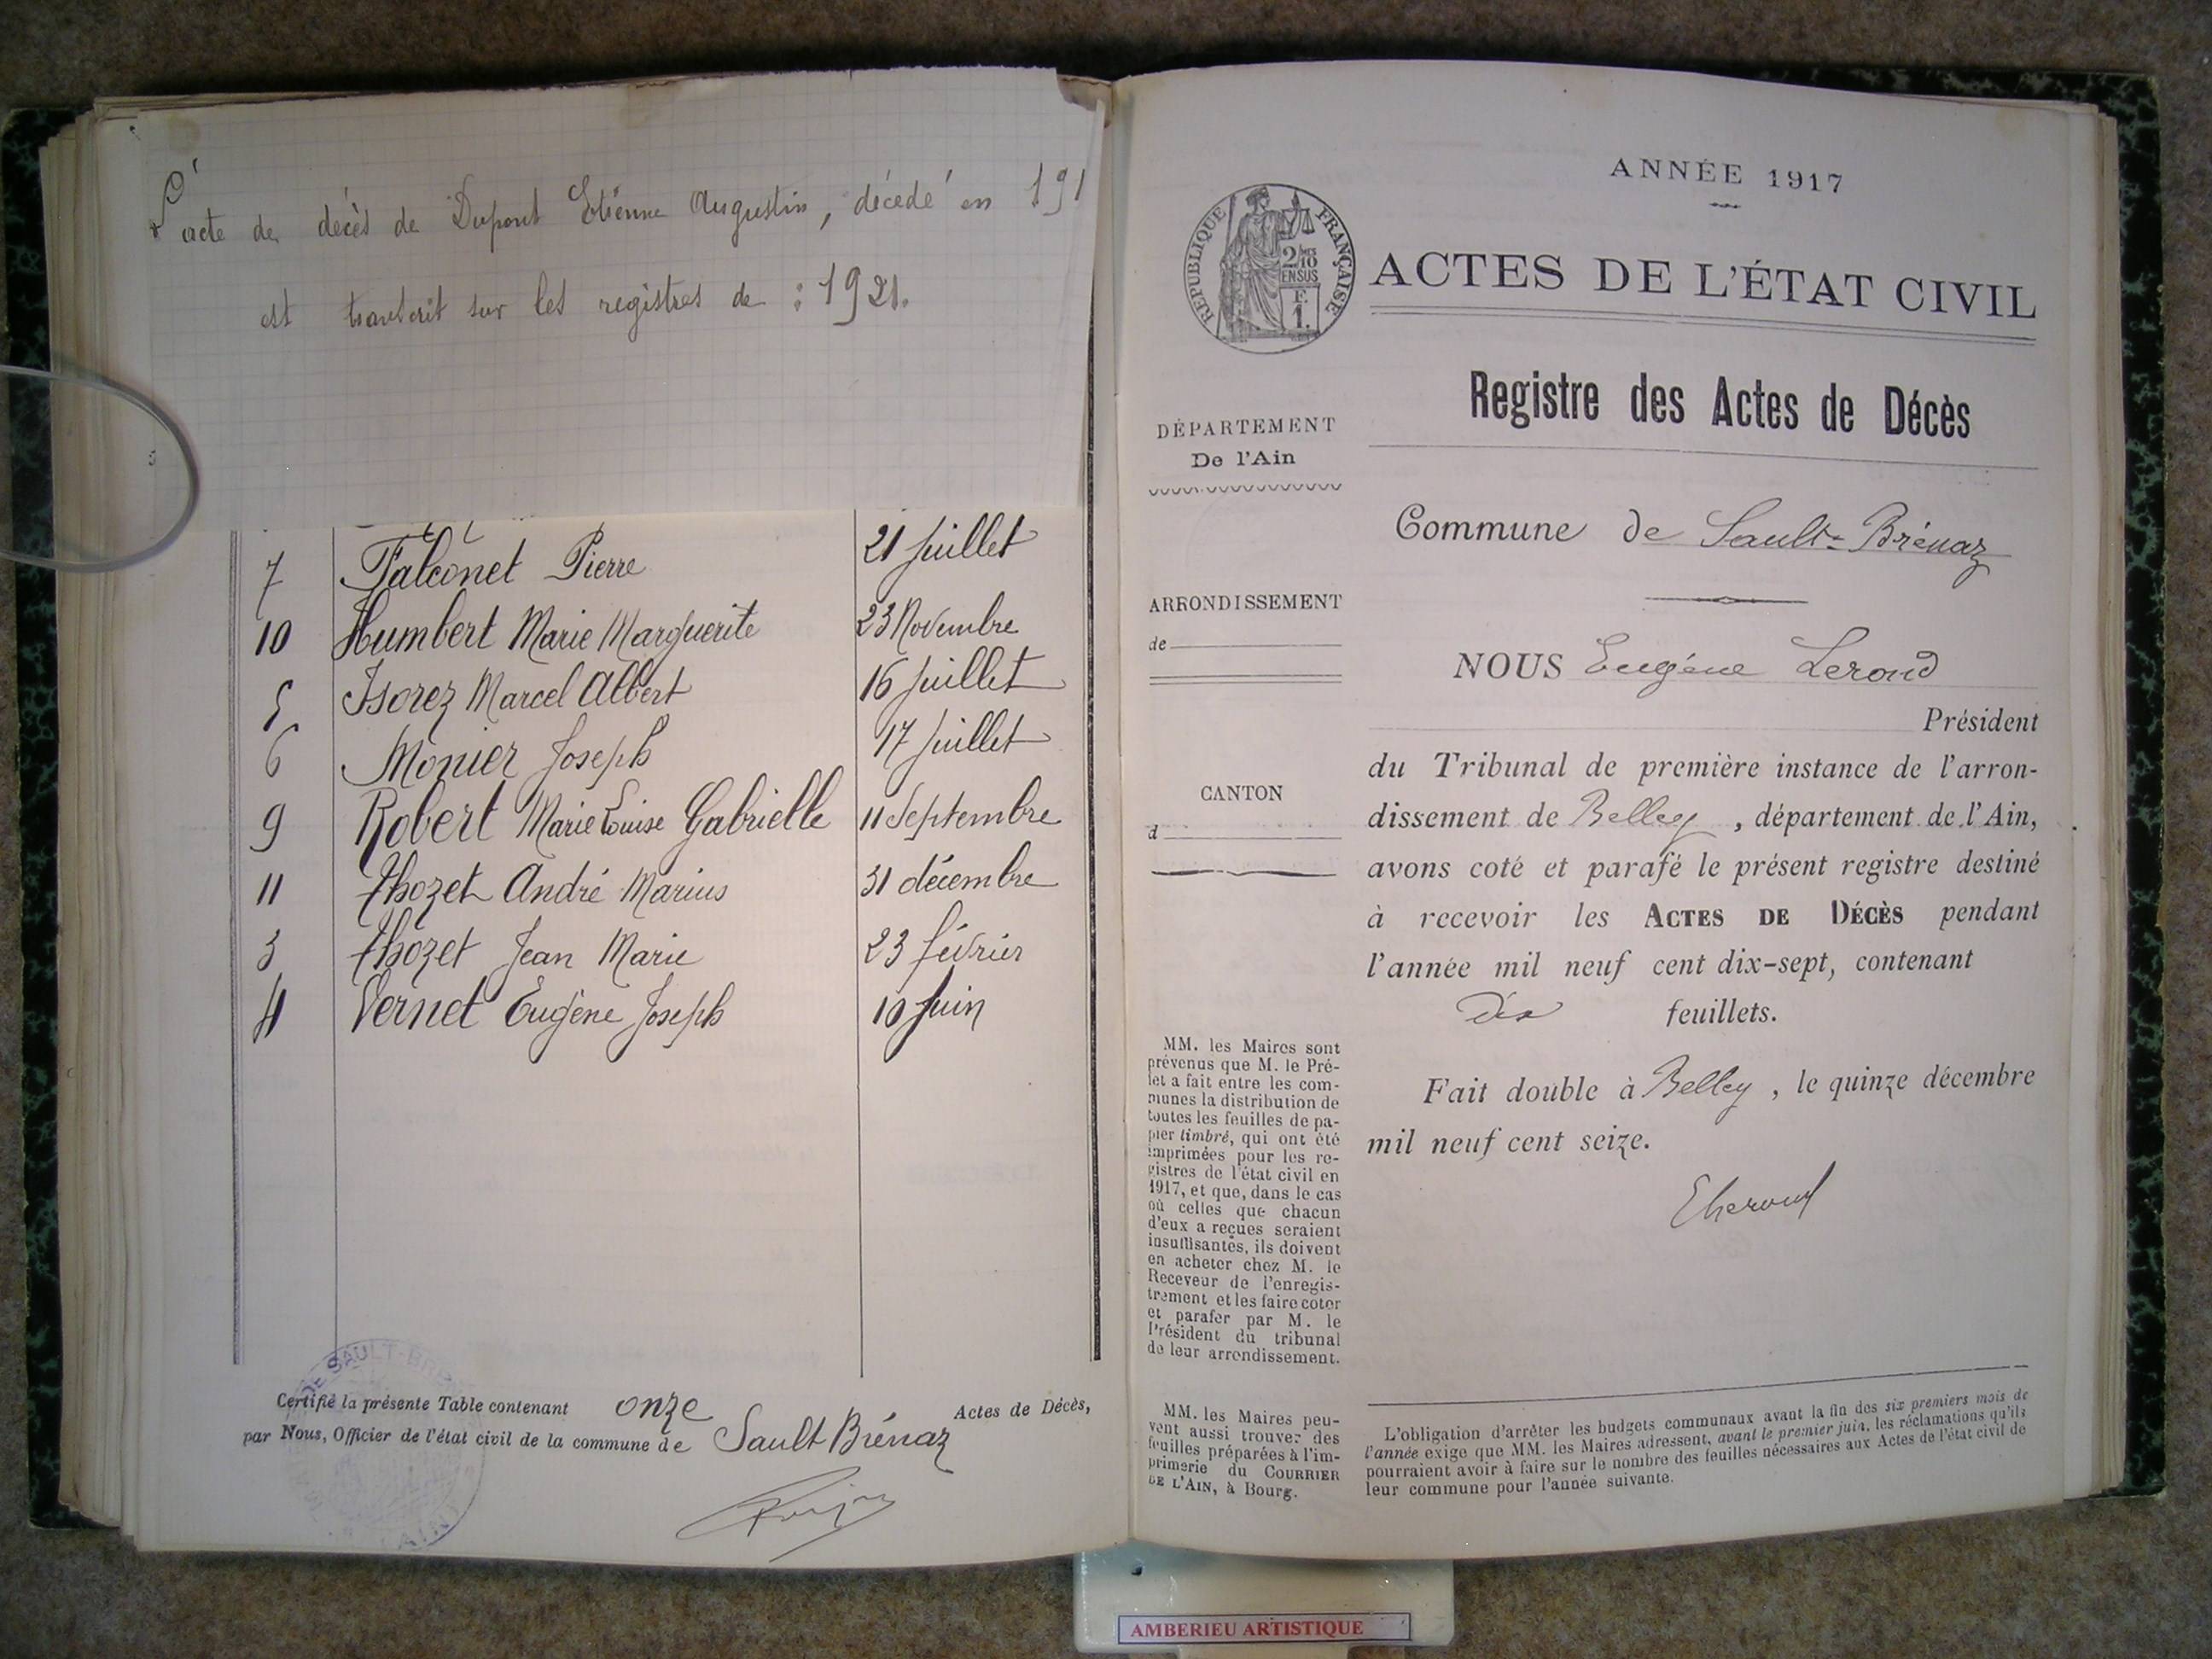 L'acte de décès de Dupont Etienne Augustin, décédé en 191
est transcrit sur les registres de : 1921.
7 Falconet Pierre 21 juillet
10 Humbert Marie Marguerite 23 Novembre
5 Isorez Marcel Albert 16 juillet
6 Monier Joseph 17 juillet
9 Robert Marie Louise Gabrielle 11 Septembre
11 Thozet André Marius 31 décembre
3 Thozet Jean Marie 23 février
4 Vernet Eugène Joseph 10 juin
DE SAULT-BR
Certifié la présente Table contenant onze Actes de Décès,
par Nous, Officier de l'état civil de la commune de Sault Brénaz
ANNÉE 1917
RÉPUBLIQUE FRANÇAISE
2/10
EN SUS
F.
1.
ACTES DE L'ÉTAT CIVIL
Registre des Actes de Décès
DÉPARTEMENT
De l'Ain
Commune de Sault-Brénaz
ARRONDISSEMENT
de
CANTON
d
NOUS Eugène Leroud
Président
du Tribunal de première instance de l'arron-
dissement de Belley, département de l'Ain,
avons coté et parafé le présent registre destiné
à recevoir les ACTES DE DÉCÈS pendant
l'année mil neuf cent dix-sept, contenant
dix feuillets.
Fait double à Belley, le quinze décembre
mil neuf cent seize.
MM. les Maires sont
prévenus que M. le Pré-
fet a fait entre les com-
munes la distribution de
toutes les feuilles de pa-
pier timbré, qui ont été
imprimées pour les re-
gistres de l'état civil en
1917, et que, dans le cas
où celles que chacun
d'eux a reçues seraient
insuffisantes, ils doivent
en acheter chez M. le
Receveur de l'enregis-
trement et les faire coter
et parafer par M. le
Président du tribunal
de leur arrondissement.
MM. les Maires peu-
vent aussi trouver des
feuilles préparées à l'im-
primerie du COURRIER
DE L'AIN, à Bourg.
L'obligation d'arrêter les budgets communaux avant la fin des six premiers mois de
l'année exige que MM. les Maires adressent, avant le premier juin, les réclamations qu'ils
pourraient avoir à faire sur le nombre des feuilles nécessaires aux Actes de l'état civil de
leur commune pour l'année suivante.
AMBERIEU ARTISTIQUE